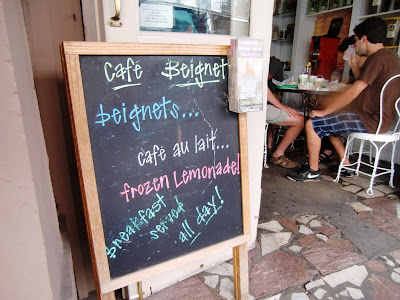 Café Beignet
beignets...
café au lait...
frozen Lemonade!
breakfast
served
all day!